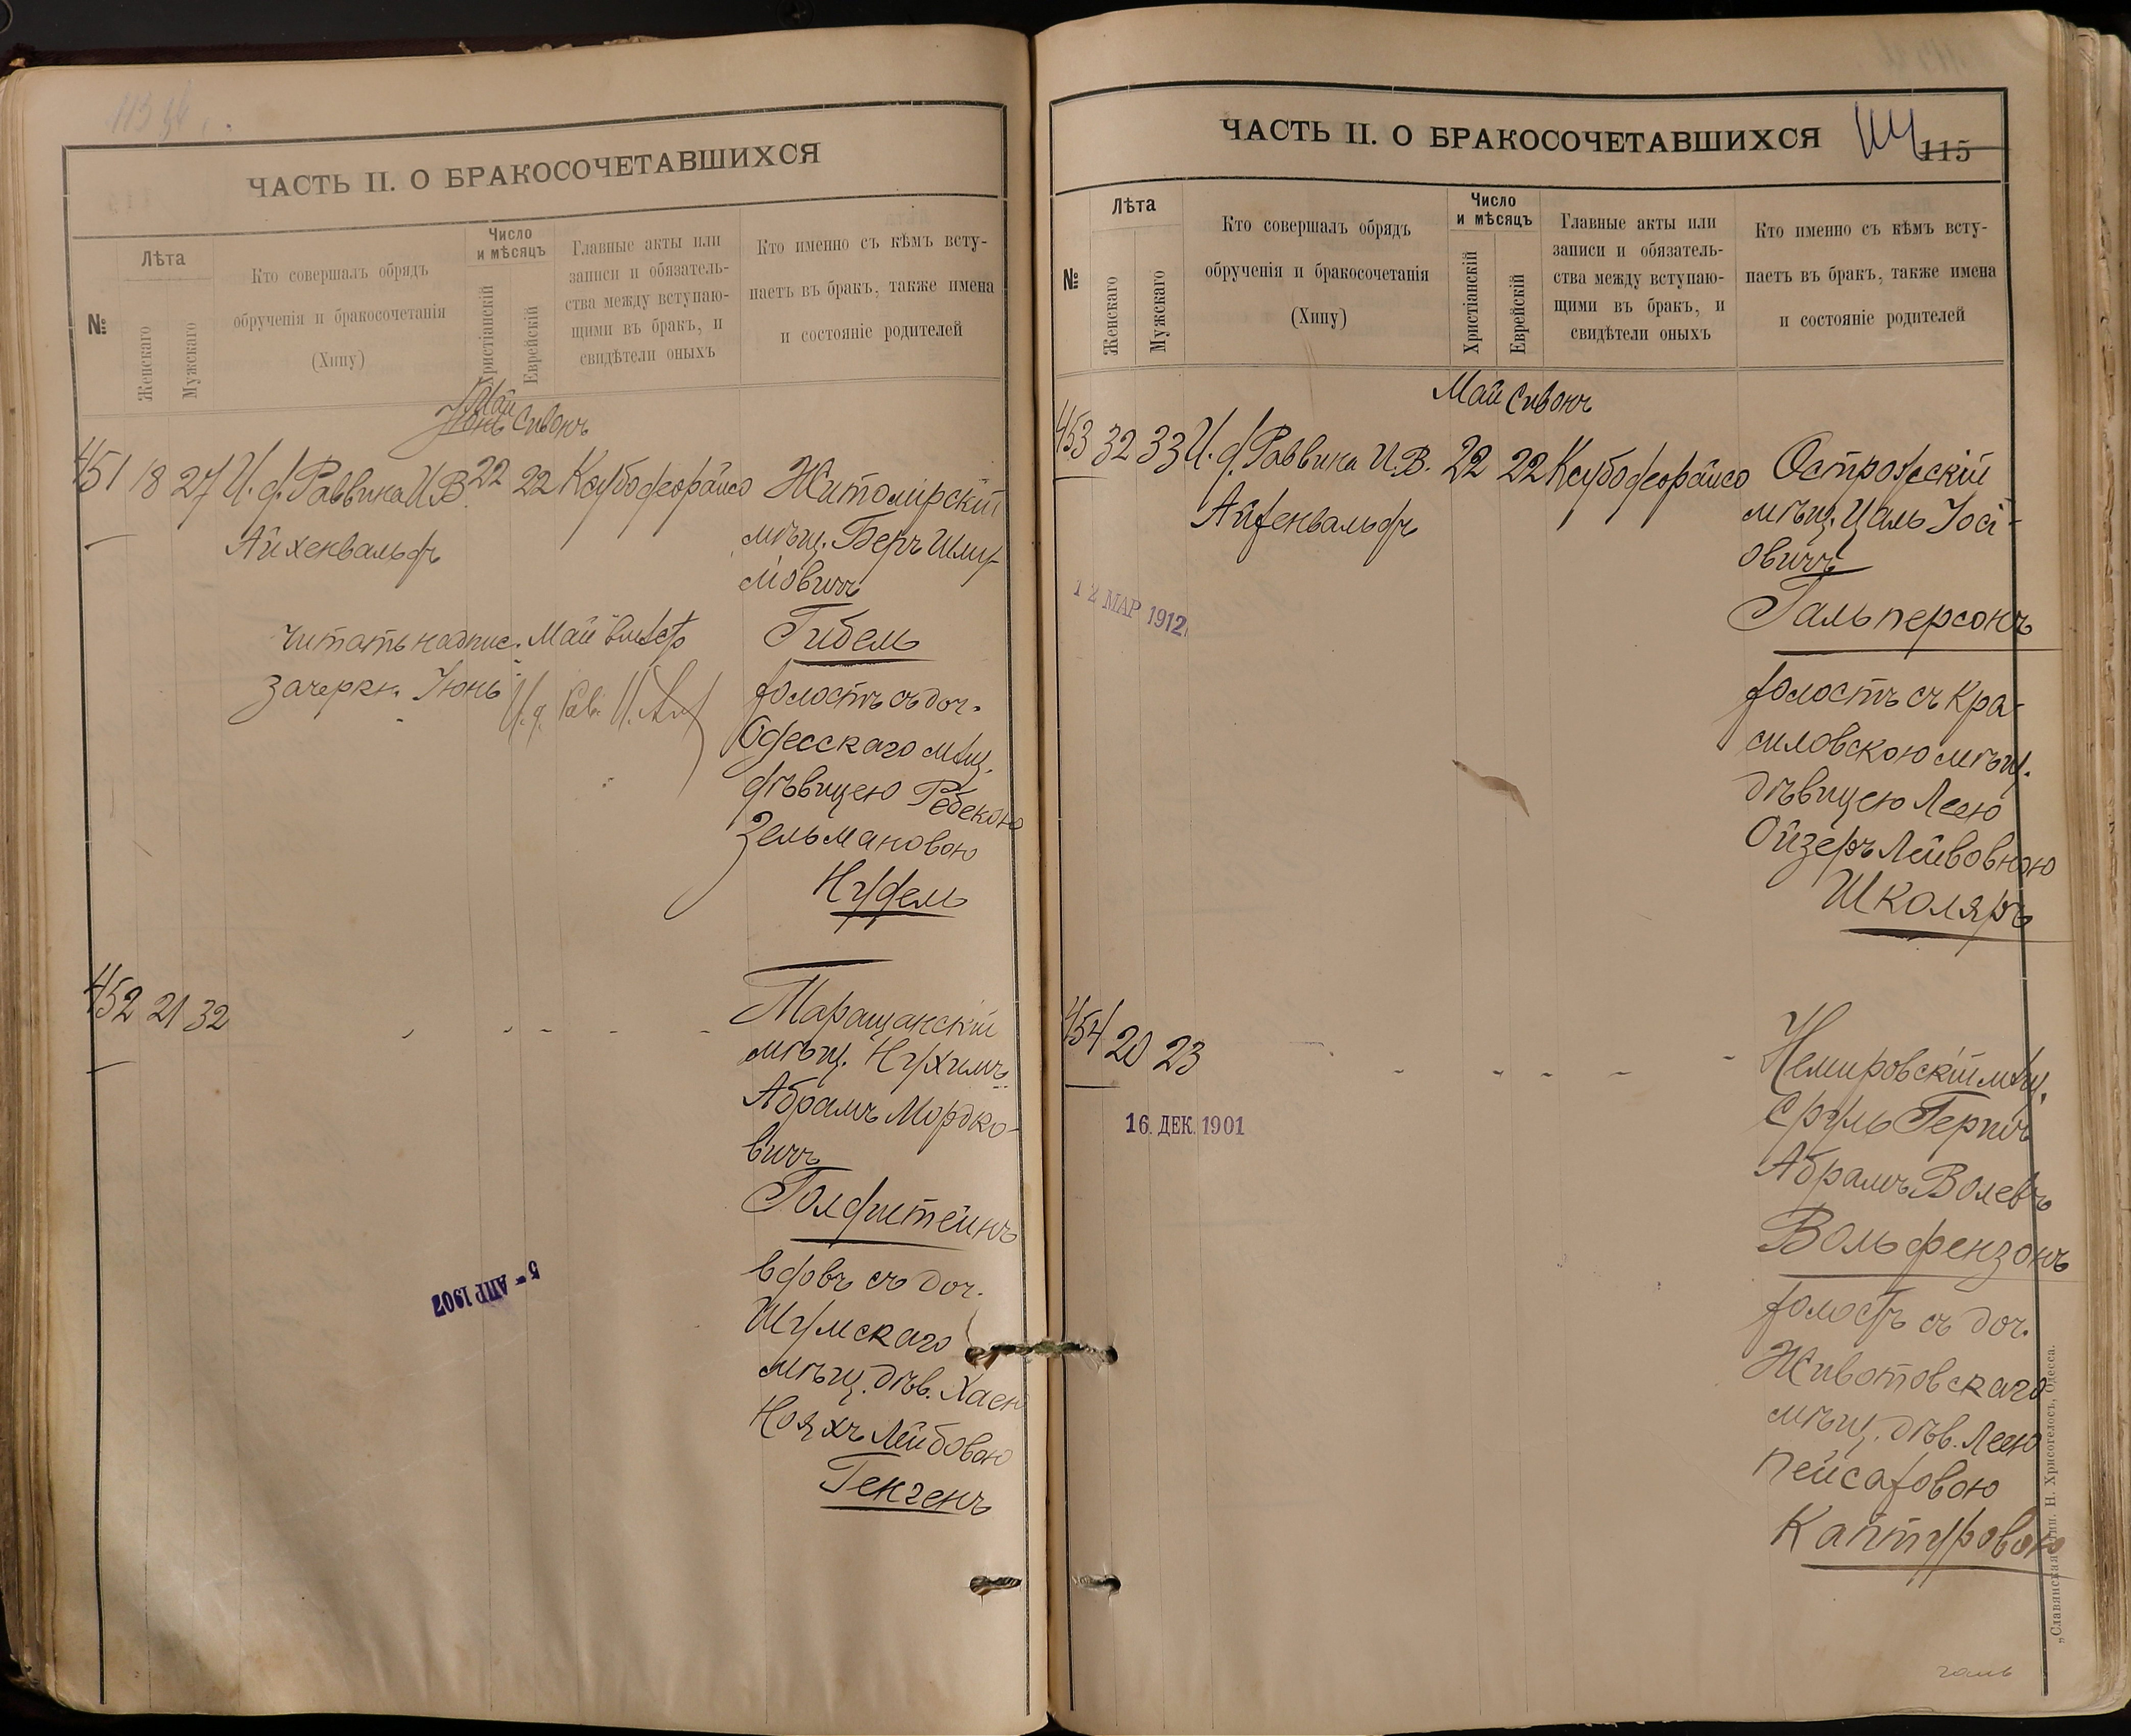 ЧАСТЬ II. О БРАКОСОЧЕТАВШИХСЯ
№
Лѣта
Женскаго
Мужскаго
Кто совершалъ обрядъ
обрученія и бракосочетанія
(Хипу)
Число
и мѣсяцъ
Христіанскій
Еврейскій
Главные акты или
записи и обязатель-
ства между вступаю-
щими въ бракъ, и
свидѣтели оныхъ
Кто именно съ кѣмъ всту-
паетъ въ бракъ, также имена
и состояніе родителей
Май
Іюнь Сивонъ
451 18 27 И. д. Раввина И. В. 22 22
Айхенвальдъ
Житомірскій
мѣщ. Беръ Шму-
ліовичъ
Гибель
холостъ съ доч.
Одесскаго мѣщ.
дѣвицею Ребекою
Зельмановою
Нудель
Читать надпис. Май вмѣсто
зачеркн. Іюнь
452 21 32
мѣщ. Нухимъ
Абрамъ Мордко-
вичъ
Голдштейнъ
вдовъ съ доч.
Шумскаго
мѣщ. дѣв. Хаею
Нояхъ Лейбовою
Генгенъ
5- АПР 1907
ЧАСТЬ II. О БРАКОСОЧЕТАВШИХСЯ
114
115
№
Лѣта
Женскаго
Мужскаго
Кто совершалъ обрядъ
обрученія и бракосочетанія
(Хипу)
Число
и мѣсяцъ
Христіанскій
Еврейскій
Главные акты или
записи и обязатель-
ства между вступаю-
щими въ бракъ, и
свидѣтели оныхъ
Кто именно съ кѣмъ всту-
паетъ въ бракъ, также имена
и состояніе родителей
Май Сивонъ
453 32 33 И. д. Раввина И. В. 22 22
Айхенвальдъ
Острожскій
мѣщ. Цаль Іосі-
овичъ
Гальперсонъ
холостъ съ Кра-
силовскою мѣщ.
дѣвицею Леею
Ойзеръ Лейвовною
Школяръ
12 МАР 1912
454 20 23
Немировскій мѣщ.
Сруль Гершъ
Абрамъ Волевъ
Вольфензонъ
холостъ съ доч.
Животовскаго
мѣщ. дѣв. Леею
Пейсаховою
Каптуровою
16. ДЕК. 1901
„Славянская" тип. Н. Хрисогелосъ, Одесса.